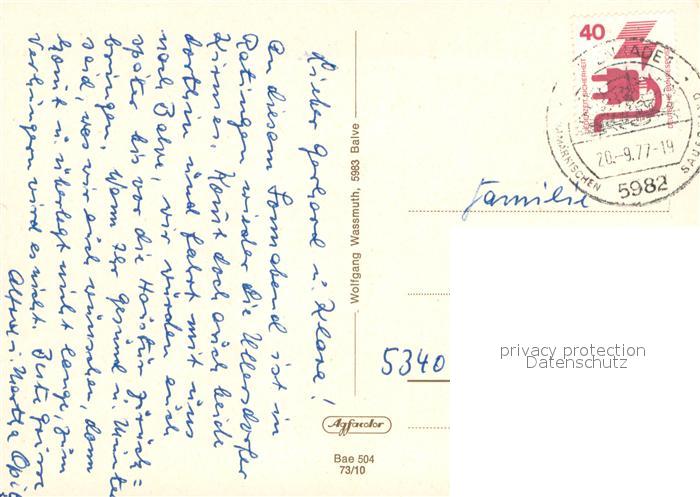 Lieber Gerhard u. Klara!
An diesem Sonnabend ist in
Ratingen wieder die Ullersdorfer
Kirmes. Komt doch auch beide
dorthin und fahrt mit uns
nach Balve, wir würden euch
später bis vor die Haustür zurück=
bringen. Wenn Ihr gesund u. munter
seid, was wir euch wünschen, dann
komt u. überlegt nicht lange, zum
Verhungern wird es nicht. Gute Grüße
Alfred u. Martha
Wolfgang Wassmuth, 5983 Balve
Agfacolor
Bae 504
73/10
40
JEDERZEIT SICHERHEIT
DEUTSCHE BUNDESPOST
20.-9.77-19
MÄRKISCHEN
5982
Familie
5340
privacy protection
Datenschutz